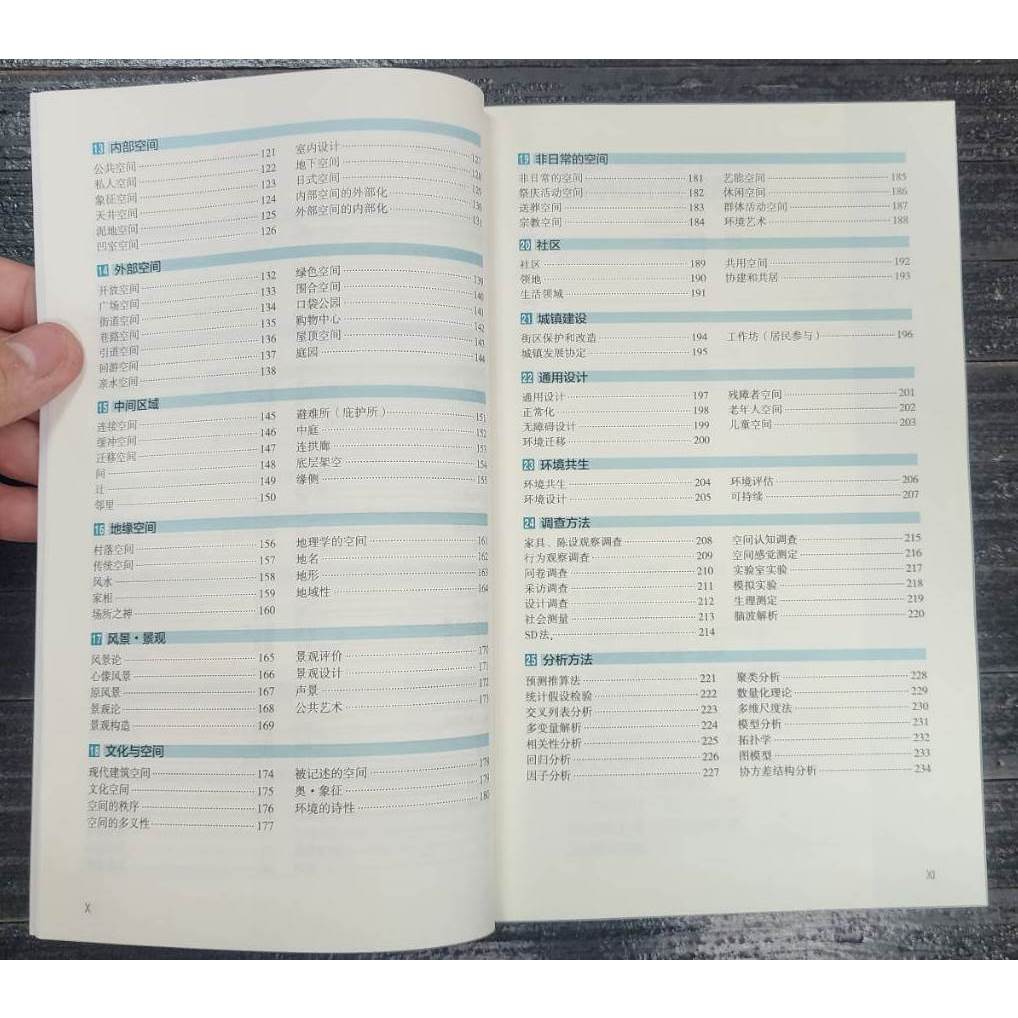 13 内部空间
公共空间 121
私人空间 122
象征空间 123
天井空间 124
泥地空间 125
凹室空间 126
室内设计 127
地下空间 128
日式空间 129
内部空间的外部化 130
外部空间的内部化 131
14 外部空间
开放空间 132
广场空间 133
街道空间 134
巷路空间 135
引道空间 136
回游空间 137
亲水空间 138
绿色空间 139
围合空间 140
口袋公园 141
购物中心 142
屋顶空间 143
庭园 144
15 中间区域
连接空间 145
缓冲空间 146
迁移空间 147
间 148
辻 149
邻里 150
避难所（庇护所） 151
中庭 152
连拱廊 153
底层架空 154
缘侧 155
16 地缘空间
村落空间 156
传统空间 157
风水 158
家相 159
场所之神 160
地理学的空间 161
地名 162
地形 163
地域性 164
17 风景·景观
风景论 165
心像风景 166
原风景 167
景观论 168
景观构造 169
景观评价 170
景观设计 171
声景 172
公共艺术 173
18 文化与空间
现代建筑空间 174
文化空间 175
空间的秩序 176
空间的多义性 177
被记述的空间 178
奥·象征 179
环境的诗性 180
X
19 非日常的空间
非日常的空间 181
祭庆活动空间 182
送葬空间 183
宗教空间 184
艺能空间 185
休闲空间 186
群体活动空间 187
环境艺术 188
20 社区
社区 189
领地 190
生活领域 191
共用空间 192
协建和共居 193
21 城镇建设
街区保护和改造 194
城镇发展协定 195
工作坊（居民参与） 196
22 通用设计
通用设计 197
正常化 198
无障碍设计 199
环境迁移 200
残障者空间 201
老年人空间 202
儿童空间 203
23 环境共生
环境共生 204
环境设计 205
环境评估 206
可持续 207
24 调查方法
家具、陈设观察调查 208
行为观察调查 209
问卷调查 210
采访调查 211
设计调查 212
社会测量 213
SD法 214
空间认知调查 215
空间感觉测定 216
实验室实验 217
模拟实验 218
生理测定 219
脑波解析 220
25 分析方法
预测推算法 221
统计假设检验 222
交叉列表分析 223
多变量解析 224
相关性分析 225
回归分析 226
因子分析 227
聚类分析 228
数量化理论 229
多维尺度法 230
模型分析 231
拓扑学 232
图模型 233
协方差结构分析 234
XI